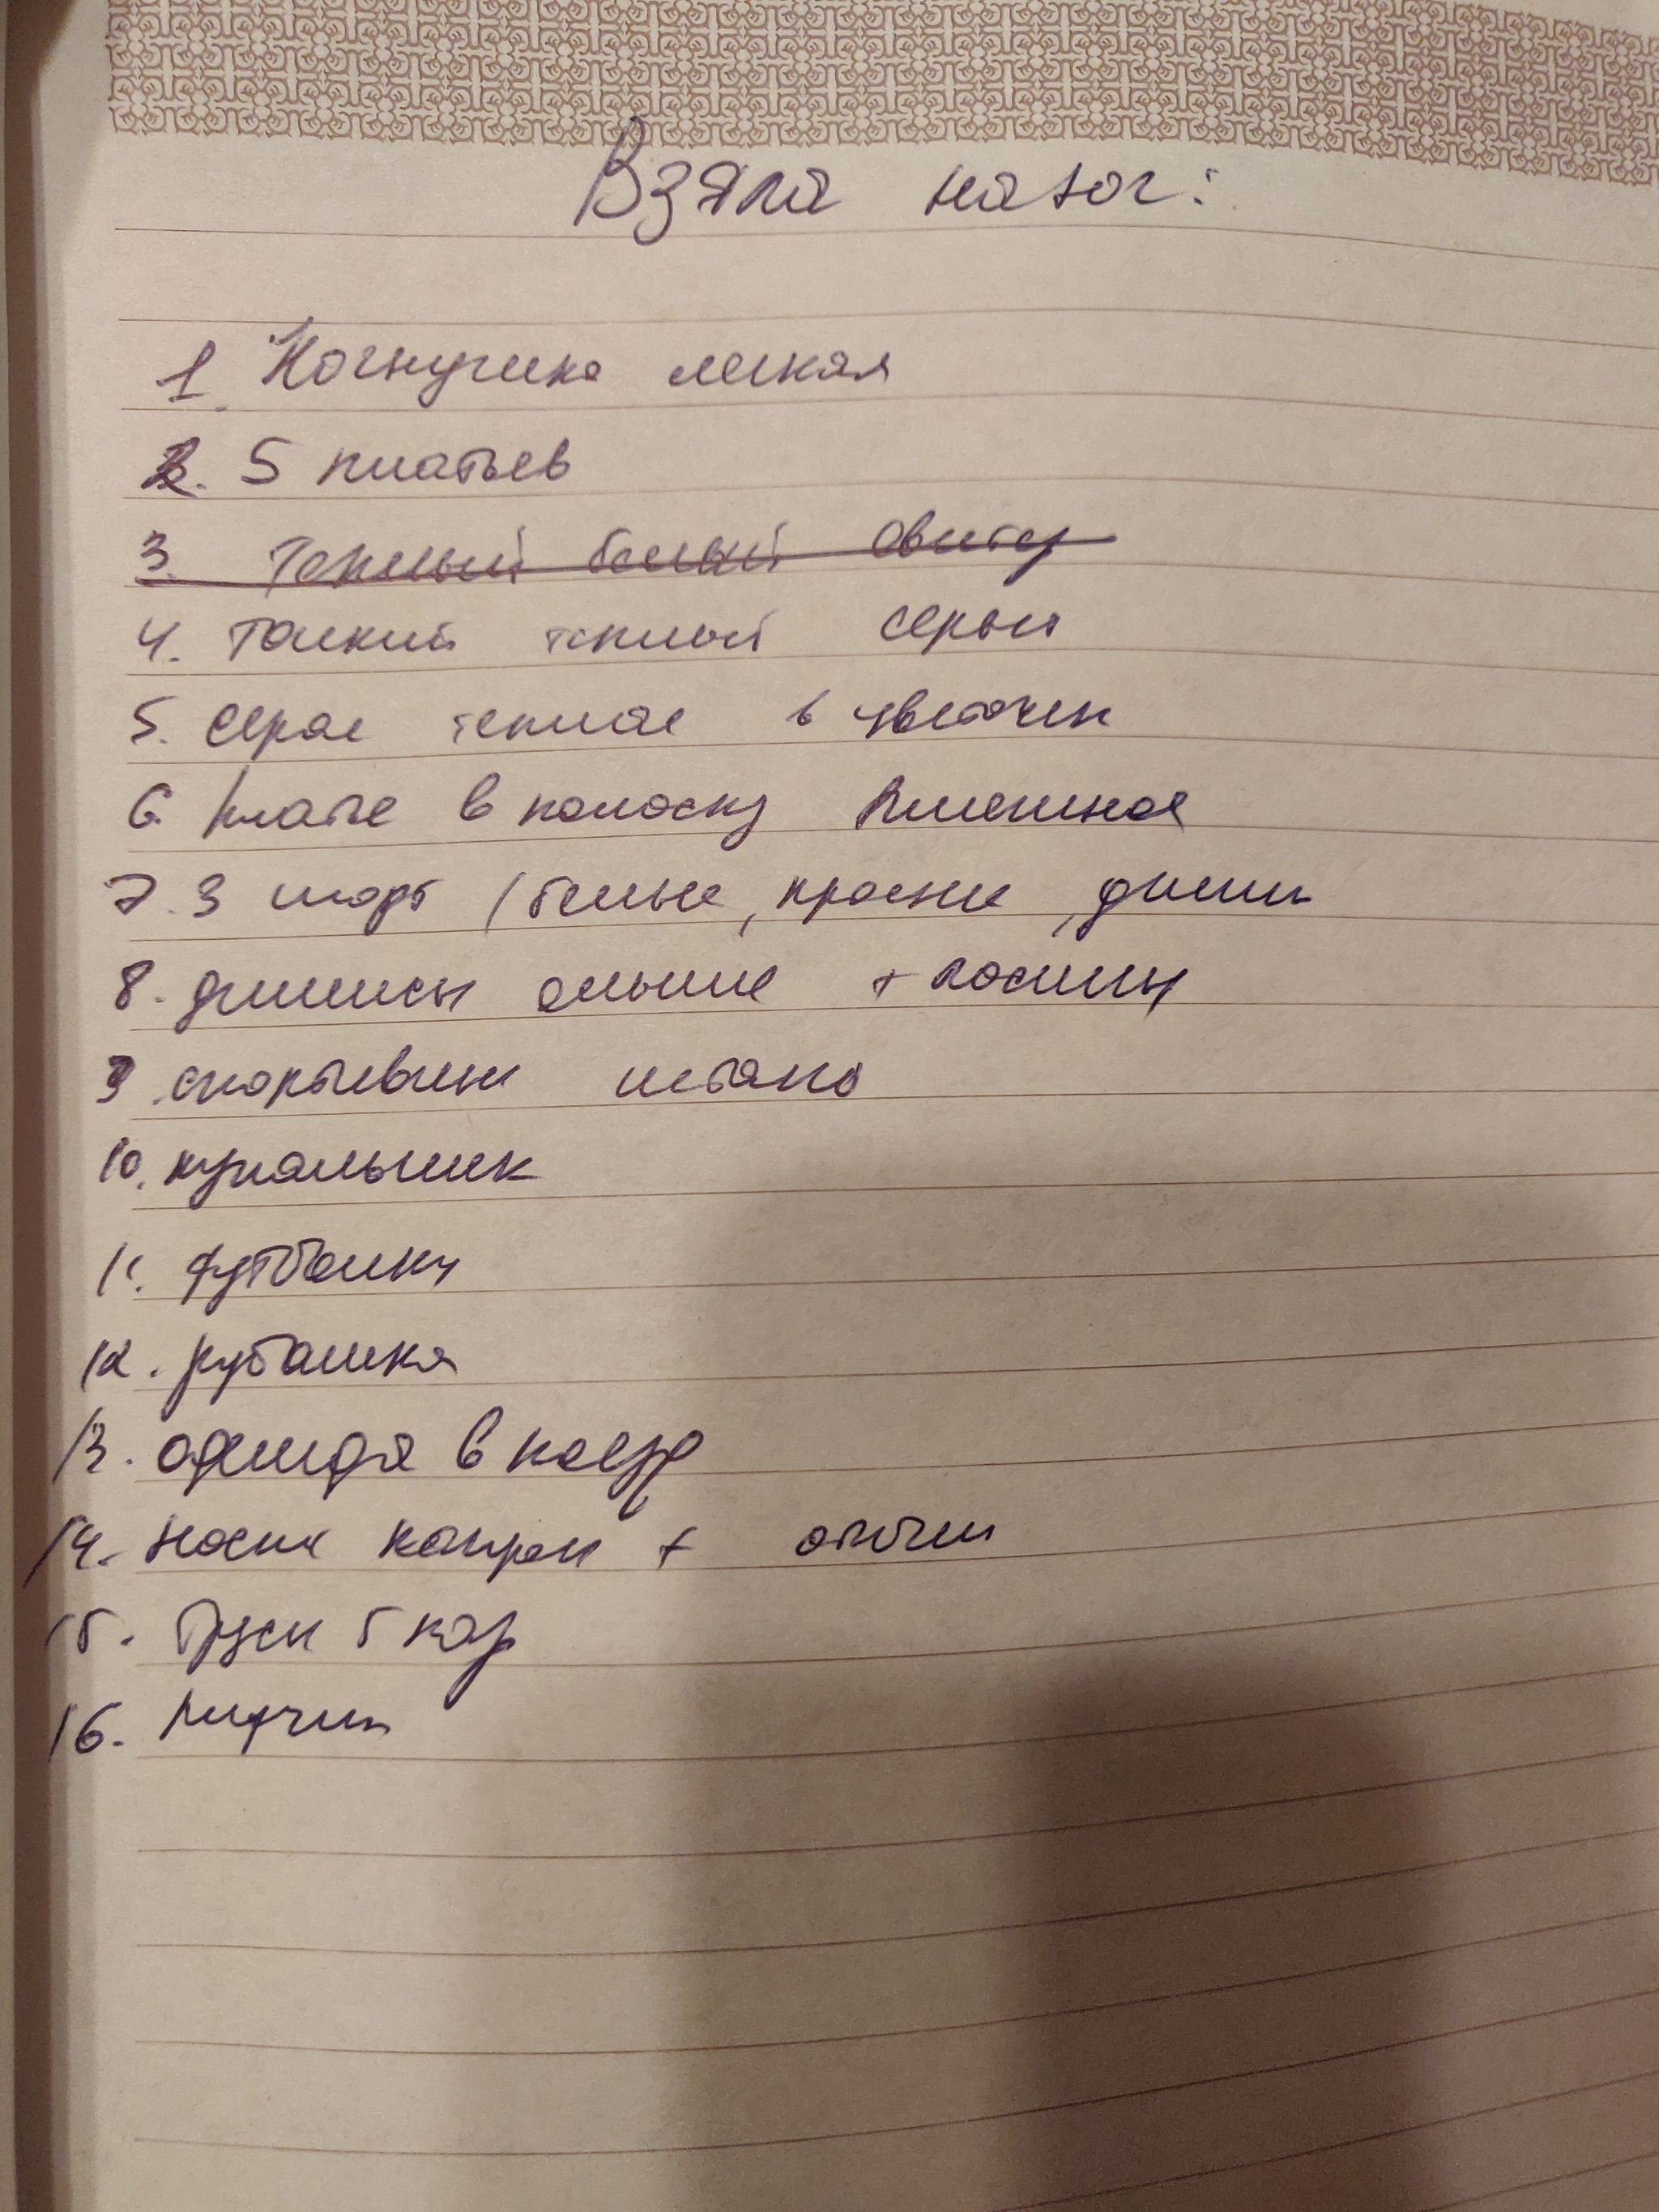 Взяла на юг:
1. Ночнушка легкая
2. 5 платьев
3. Теплый белый свитер
4. тонкий теплый серый
5. серое теплое в цветочек
6. платье в полоску
7. 3 шорт (белые, красные, джинс
8. джинсы + лосины
9. спортивные штаны
10. купальник
11. футболки
12. рубашка
13. одежда в поезд
14. носки капрон +
15. Трусы 5 пар
16. Лифчик